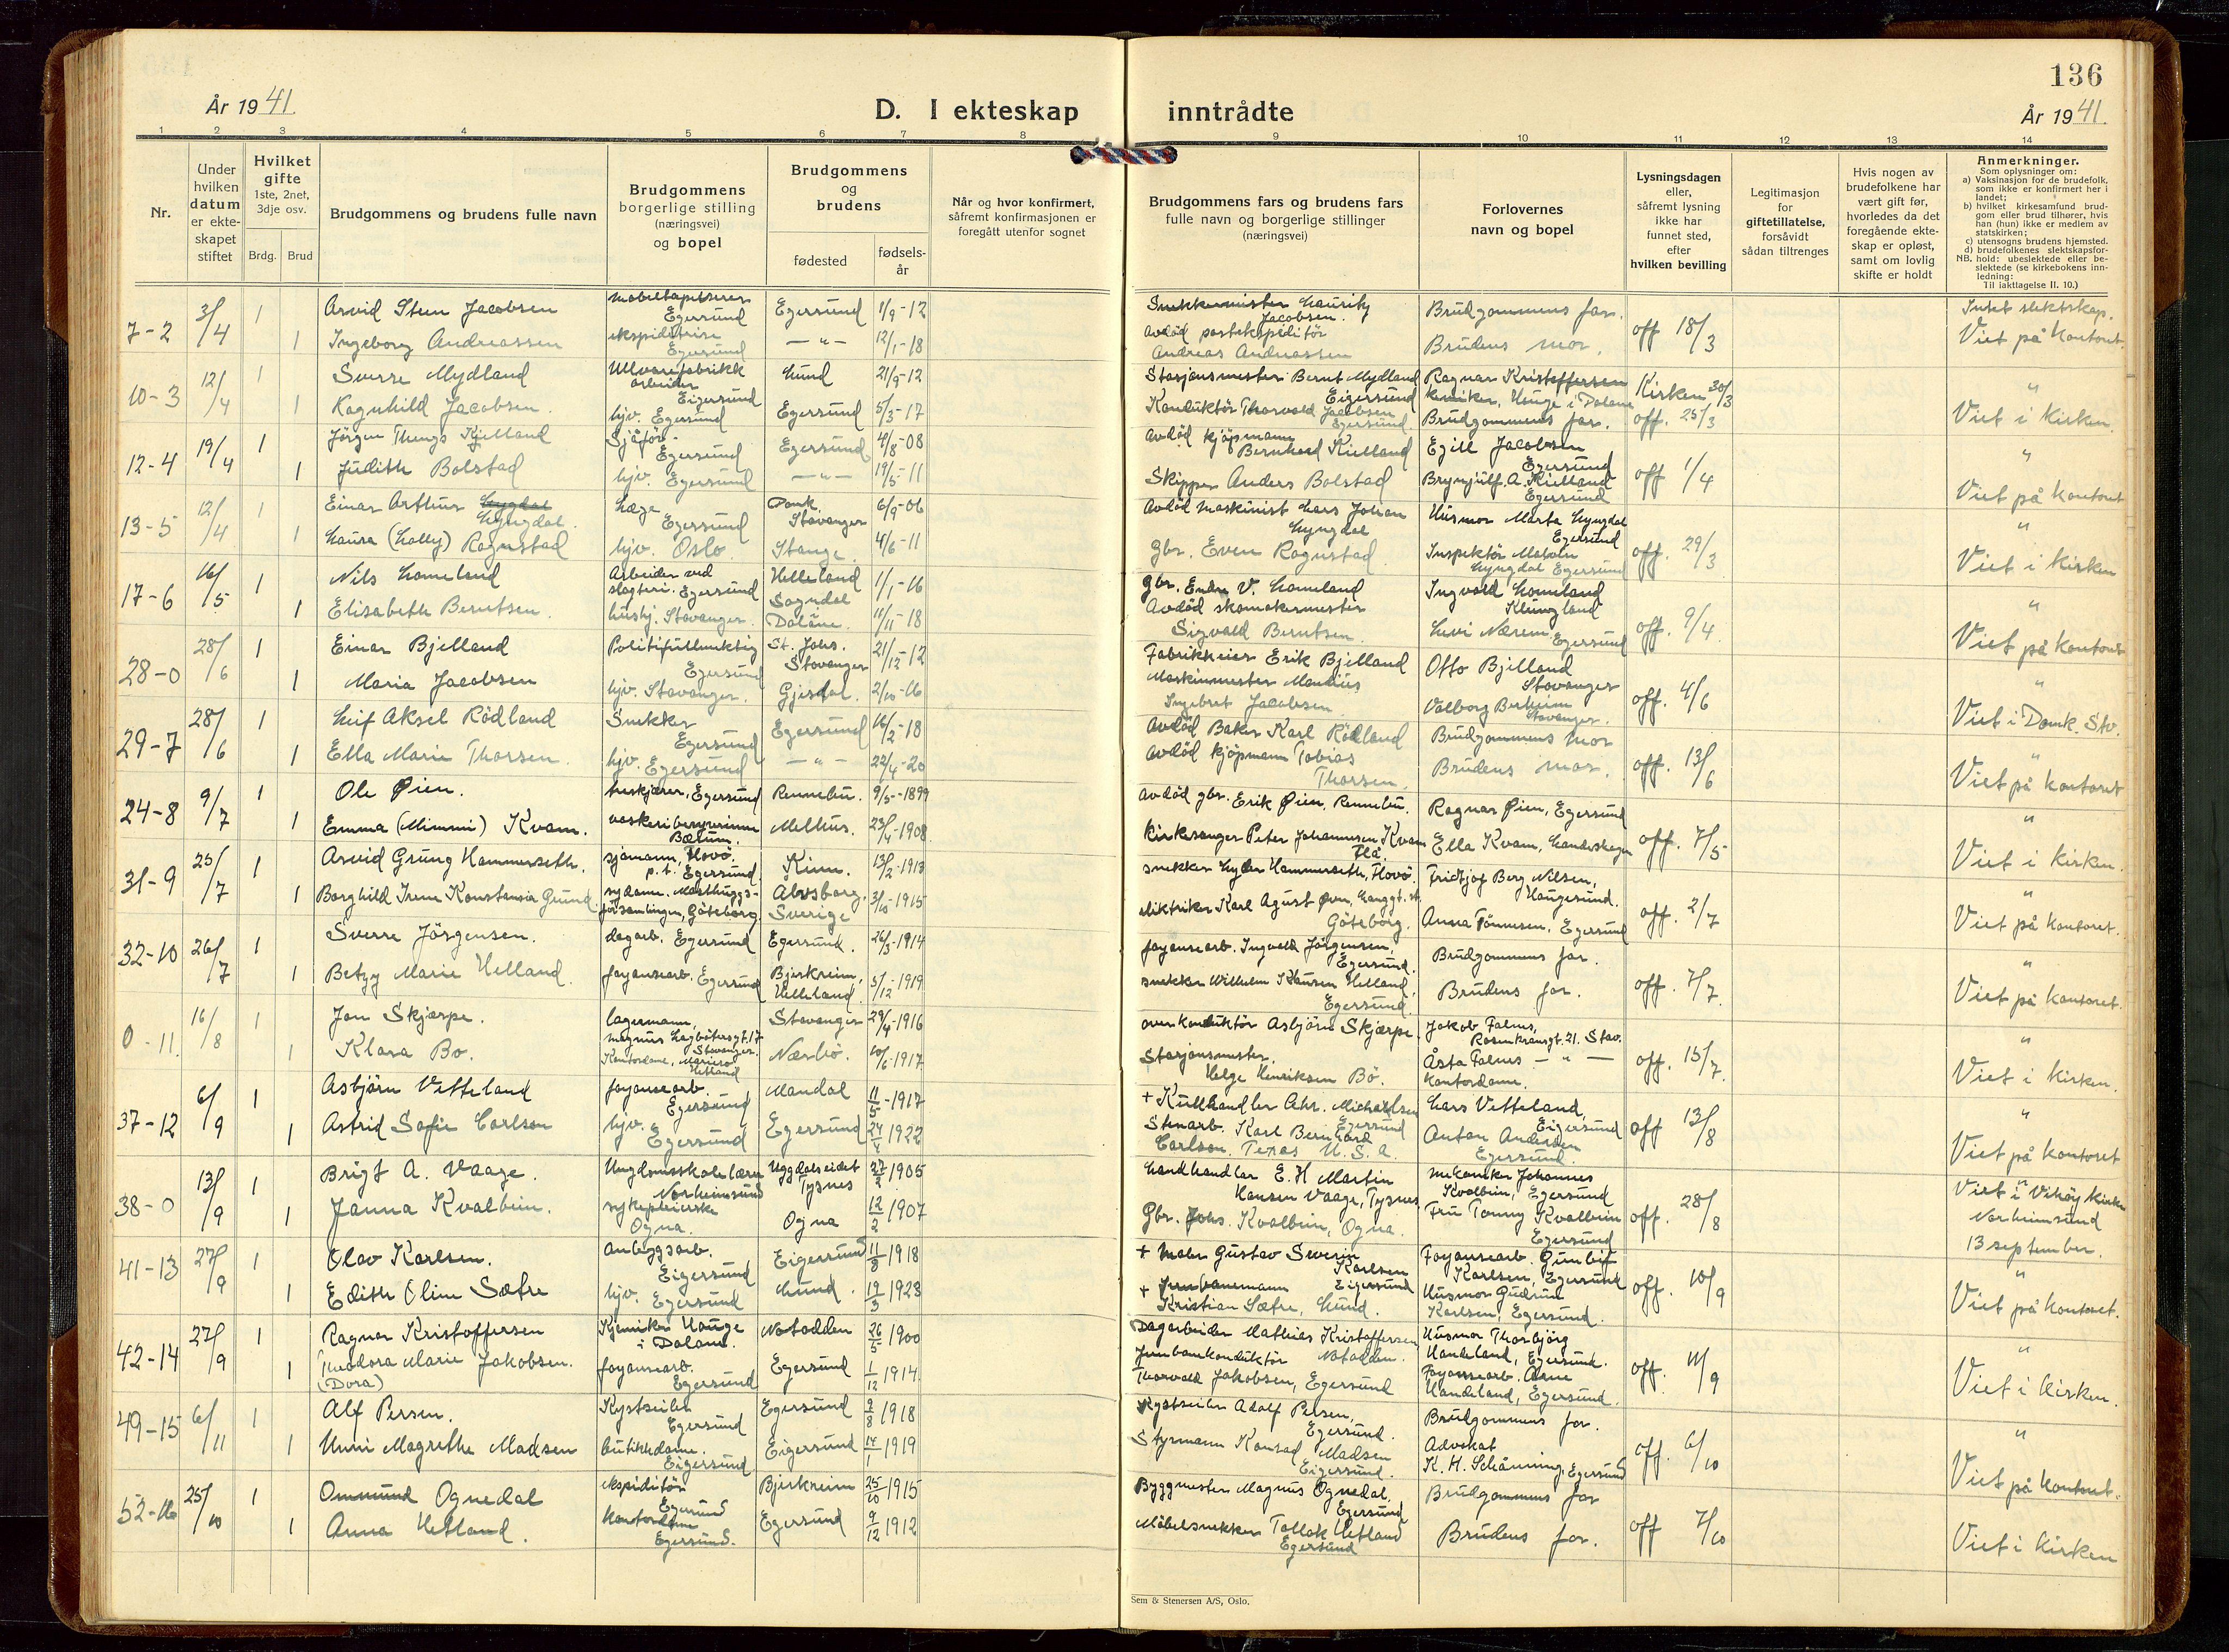 136
År 1941.
D. I ekteskap
inntrådte
År 1941.
1 2 3 4 5 6 7 8 9 10 11 12 13 14
Nr.
Under hvilken datum er ekteskapet stiftet
Hvilket gifte 1ste, 2net, 3dje osv.
Brdg. Brud
Brudgommens og brudens fulle navn
Brudgommens borgerlige stilling (næringsvei) og bopel
Brudgommens og brudens
fødested
fødsels-år
Når og hvor konfirmert, såfremt konfirmasjonen er foregått utenfor sognet
Brudgommens fars og brudens fars fulle navn og borgerlige stillinger (næringsvei)
Forlovernes navn og bopel
Lysningsdagen eller, såfremt lysning ikke har funnet sted, efter hvilken bevilling
Legitimasjon for giftetillatelse, forsåvidt sådan tiltrenges
Hvis nogen av brudefolkene har vært gift før, hvorledes da det foregående ekteskap er opløst, samt om lovlig skifte er holdt
Anmerkninger.
Som oplysninger om:
a) Vaksinasjon for de brudefolk, som ikke er konfirmert her i landet;
b) hvilket kirkesamfund brudgom eller brud tilhører, hvis han (hun) ikke er medlem av statskirken;
c) utensogns brudens hjemsted.
d) brudefolkenes slektskapsforhold: ubeslektede eller beslektede (se kirkebokens innledning:
NB. Til iakttagelse II. 10.)
7-2 3/4 1 Arvid Steen Jacobsen møbeltapetserer Egersund Egersund 1/9-12 Snekkermester Lauritz Jacobsen. Brudgommens far. off 18/3 Intet slektskap.
1 Ingeborg Andreassen ekspiditrise Egersund — " — 12/1-18 avdød postekspiditør Andreas Andreassen Brudens mor. Viet på kontoret.
10-3 12/4 1 Sverre Mydland Ullvarefabrikk arbeider Eigersund Lund 21/9-12 Stasjonsmester Bernt Mydland Eigersund Ragnar Kristoffersen kemiker, Hauge i Dalane Kirken 30/3 "
1 Ragnhild Jacobsen. hjv. Egersund Egersund 5/3-17 Konduktør Thorvald Jacobsen Egersund. Brudgommens far. off. 25/3 Viet i Kirken.
12-4 19/4 1 Jørgen Thengs Kjelland Sjåfør- Egersund Egersund 4/8-08 avdød kjøpmann Bernhard Kielland Egill Jacobsen Egersund off 1/4 "
1 Judith Bolstad hjv. Egersund — " — 19/5-11 Skipper Anders Bolstad Brynjulf A. Kielland Egersund Viet på kontoret
13-5 12/4 1 Einar Arthur Lyngdal. Læge Egersund Domk. Stavanger 6/9-06 avdød maskinist Lars Johan Lyngdal Husmor Marta Lyngdal Egersund off. 29/3 "
1 Laura (Lally) Rognstad hjv. Oslo. Stange 4/6-11 gbr. Even Rognstad Inspektør Lyngdal Egersund Viet i Kirken
17-6 16/5 1 Nils Lomeland Arbeider ved slagteri. Egersund Helleland 1/1-16 gbr. Endre V. Lomeland Ingvald Lomeland Klungland off. 9/4 "
1 Elisabeth Berntsen. hushj. Stavanger. Sogndal Dalane. 11/11-18 Avdød skomakermester Sigvald Berntsen. Levi Nærem Egersund Viet på kontoret
28-0 28/6 1 Einar Bjelland Politifullmektig Egersund St. Johs. Stavanger 21/12-12 Fabrikkeier Erik Bjelland Otto Bjelland Stavanger off. 4/6 "
1 Maria Jacobsen hjv. Stavanger. Gjesdal. 2/10-16 Maskinmester Mandius Ingebret Jacobsen Valborg Berheim Stavanger. Viet i Domk. Stv.
29-7 28/6 1 Leif Aksel Rødland Snekker Egersund Egersund 16/2-18 avdød Baker Karl Rødland Brudgommens mor off. 13/6 "
1 Ella Marie Thorsen. hjv. Egersund — " — 22/4-20 avdød kjøpmann Tobias Thorsen. Brudens mor. Viet på kontoret
24-8 9/7 1 Ole Øien. treskjærer, Egersund Rennebu. 9/5-1899 avdød gbr. Erik Øien, Rennebu. Ragnar Øien, Egersund off. 7/5 "
1 Emma (Mimmi) Kvam. vaskeribestyrerinne Bærum. Melhus. 23/4-1908 kirkesanger Peter Johannesen Kvam Flå. Ella Kvam, Landeskogen Viet i kirken.
31-9 25/7 1 Arvid Grung Hammerseth. sjømann, Hovø. p.t. Egersund. Kinn. 13/2-1913 snekker Hammerseth, Hovø. Fridtjof Berg Nilsen, Haugesund. off. 2/7 "
1 Borghild Irene Konstansia Grund. sydame. Masthuggsförsamlingen, Göteborg. Älvsborg. Sverige 3/10-1915 elektriker Karl Agust Göteborg. Anna Tønnesen, Egersund Viet på kontoret.
32-10 26/7 1 Sverre Jørgensen. dagarb. Egersund Egersund. 26/3-1914 fayansearb. Ingvald Jørgensen, Egersund. Brudgommens far. off. 7/7. "
1 Betzy Marie Helland. fayansearb. Egersund Bjerkreim, Helleland. 5/12-1919 snekker Wilhelm Klausen Helland, Egersund. Brudens far. Viet på kontoret.
0-11. 16/8 1 Jon Skjærpe. lagermann, Magnus Lagabøtersgt. 17 Stavanger. Stavanger 29/4-1916 overkonduktør Asbjørn Skjærpe. Jakob Falnes, Rosenkransgt. 21. Stav. off. 15/7. "
1 Klara Bø. Kontordame, Mariero Hetland Nærbø. 10/6-1917 Stasjonsmester. Helge Henriksen Bø. Åsta Falnes — " — kontordame. Viet i kirken.
37-12 6/9 1 Asbjørn Vetteland fayansearb. Egersund Mandal 11/5-1917 + Kullhandler Chr. Michaelsen Egersund Lars Vetteland, Eigersund off 13/8 "
1 Astrid Sofie Carlson hjv. Egersund Egersund 1922 Stenarb. Karl Bernhard Carlson. Texas U.S.A. Anton Andersen Egersund. Viet på kontoret
38-0 13/9 1 Brigt A. Vaage. Ungdomsskolelærer Norheimsund Uggdalseidet Tysnes 27/2 1905 Landhandler E. H Martin Hansen Vaage, Tysnes mekaniker Johannes Kvalbein, Egersund off. 28/8 Viet i Vikøy kirke Norheimsund
1 Janna Kvalbein. sykepleierske Ogna. Ogna 12/2 1907 Gbr. Johs. Kvalbein, Ogna. Fru Tonny Kvalbein Egersund 13 september.
41-13 27/9 1 Olav Karlsen. anleggsarb. Eigersund Eigersund 11/8 1918 + Maler Gustav Severin Karlsen Eigersund Fayansearb. Gunleif Karlsen, Egersund off. 10/9 "
1 Edith Oline Sætre hjv. Egersund Lund. 19/3 1923 + Jernbanemann Kristian Sætre, Lund. Husmor Gudrun Karlsen, Egersund. Viet på kontoret.
42-14 27/9 1 Ragnar Kristoffersen Kjemiker Hauge i Dalane. Notodden 26/5 1900 Dagarbeider Mathias Kristoffersen Notodden. Husmor Thorbjørg Handeland, Egersund. off. 11/9 "
1 Theodora Marie Jakobsen. (Dora) fayansearb. Egersund Egersund 1/12 1914. Jernbanekonduktør Thorvald Jakobsen, Egersund Fayansearb. Arne Handeland, Egersund. Viet i kirken.
49-15 6/11 1 Alf Persen. Kystseiler Egersund Egersund 2/8 1918 Kystseiler Adolf Persen, Egersund. Brudgommens far. off. 6/10 "
1 Unni Magrethe Madsen butikkdame. Eigersund. Eigersund 14/1 1919 Styrmann Konrad Madsen Eigersund. Advokat K. H. Schånning, Egersund Viet på kontoret.
52-16 25/10 1 Ommund Ognedal ekspiditør Egersund Bjerkreim 25/10 1915 Byggmester Magnus Ognedal, Egersund Brudgommens far off 7/10
1 Anna Hetland. kontordame Egersund. Egersund 9/12 1912 Møbelsnekker Tollak Hetland Egersund Brudens far. Viet i Kirken
Sem & Stenersen A/S, Oslo.